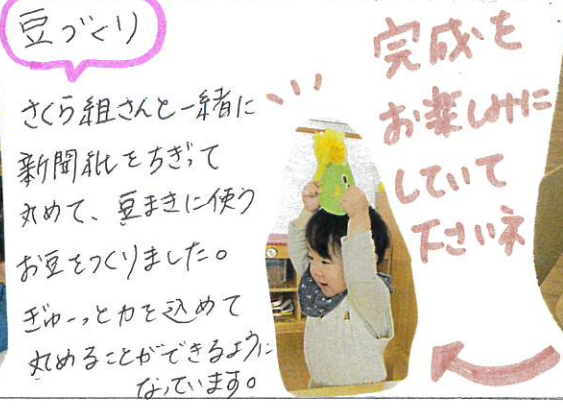 豆づくり
さくら組さんと一緒に
新聞紙をちぎって
丸めて、豆まきに使う
お豆をつくりました。
ぎゅーっと力を込めて
丸めることができるように
なっています。
完成を
お楽しみに
していて
下さいネ